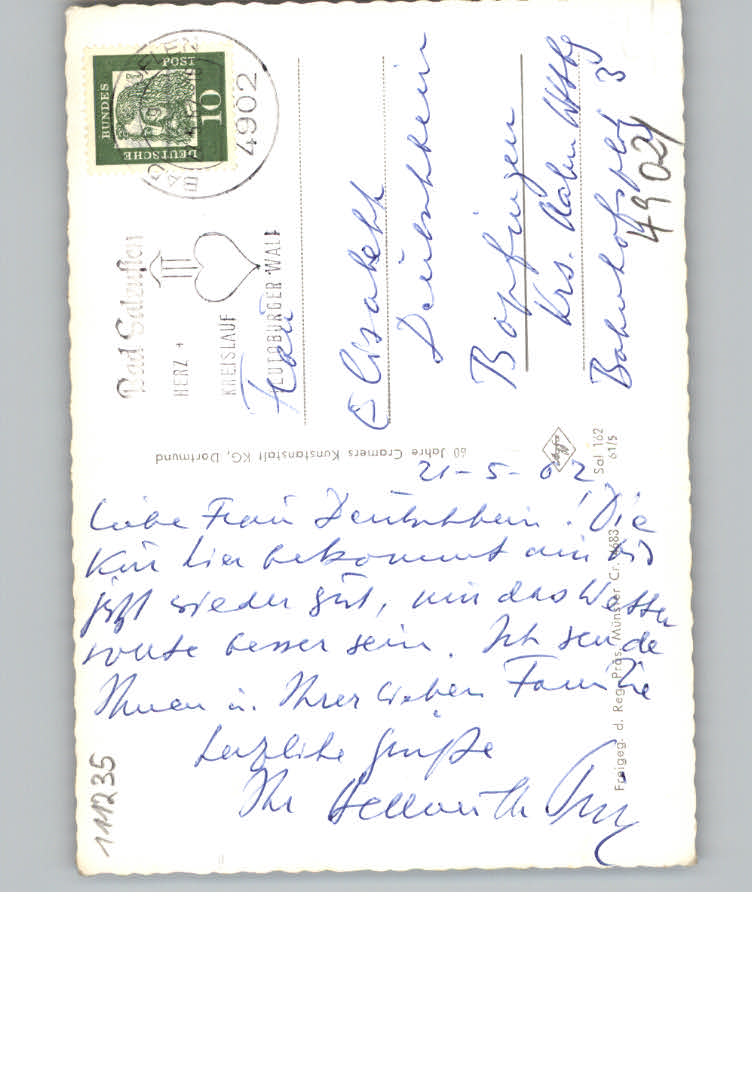 DEUTSCHE
BUNDES
POST
10
4902
Bad Salzuflen
HERZ +
KREISLAUF
TEUTOBURGER WALD
Frau
Elisabeth
Deutschbein
Bopfingen
Krs. Aalen Wttbg
Bahnhofsplatz 3
4902
60 Jahre Cramers Kunstanstalt KG, Dortmund
Sal 162
61/5
21-5-62
Liebe Frau Deutschbein! Die
Kur hier bekommt mir bis
jetzt wieder gut, nur das Wetter
sollte besser sein. Ich sende
Ihnen u. Ihrer lieben Familie
herzliche Grüße
Ihr Hellmuth
Freigeg. d. Reg. Präs. Münster Cr. 4683
111235